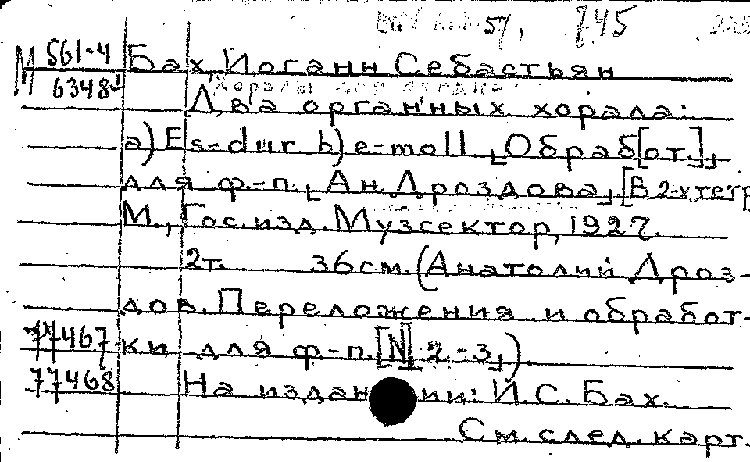 57, 745
М 561-4 Бах, Иоганн Себастьян
6348
Два органных хорала:
а) Es-dur b) e-moll. Обраб[от.]
для ф-п. Ан. Дроздова, [В 2-х тетр
М., Гос. изд. Музсектор, 1927.
2т. 36см. (Анатолий Дроз-
дов. Переложения и обработ-
77467 ки для ф-п. [№ 2-3])
77468 На издании: И.С. Бах.
См. след. карт.